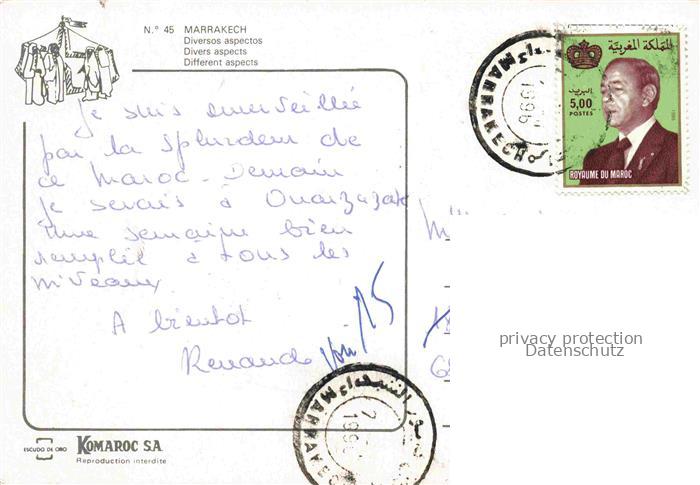 N.º 45 MARRAKECH
Diversos aspectos
Divers aspects
Different aspects
Je suis émerveillée
par la splendeur de
ce Maroc. Demain
je serais à Ouarzazate
Une semaine bien
remplie à tous les
niveaux
A bientot
Renaude
المملكة المغربية
البريد
5,00
POSTES
ROYAUME DU MAROC
MARRAKECH
1996
privacy protection
Datenschutz
MARRAKECH
ESCUDO DE ORO KOMAROC S.A.
Reproduction interdite